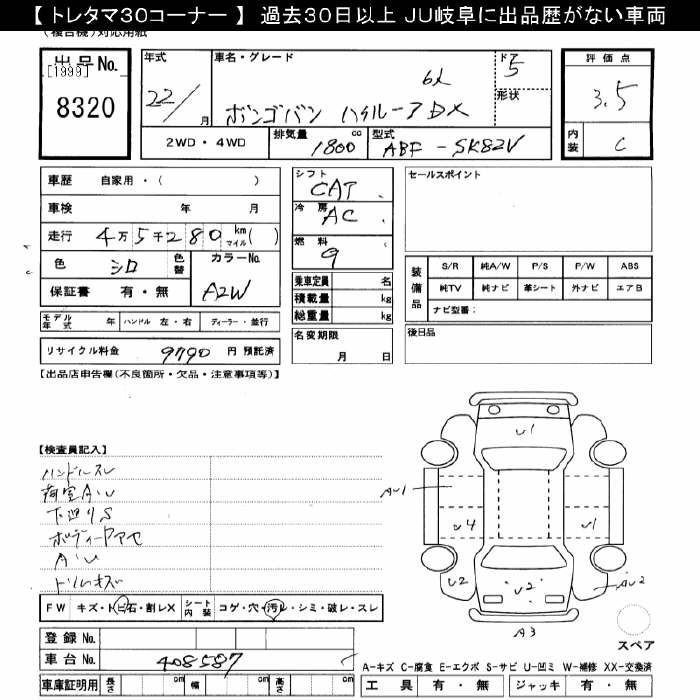 【 トレタマ30コーナー 】 過去30日以上 JU岐阜に出品歴がない車両
(複合機)対応用紙
出品No.
[1999]
8320
年式 車名・グレード ドア
22/ 月 6人 5
ボンゴバン ハイルーフDX 形状
2WD・4WD 排気量 1800 cc 型式 ABF-SK82V
評価点
3.5
内装 C
車歴 自家用・( )
車検 年 月
走行 4万5千280 km マイル ( )
色 シロ 色替 カラーNo. A2W
保証書 有・無
モデル年式 年 ハンドル 左・右 ディーラー・並行
リサイクル料金 9790 円 預託済
シフト CAT
冷房 AC
燃料 9
乗車定員 名
積載量 kg
総重量 kg
名変期限
月 日
セールスポイント
装備品 S/R 純A/W P/S P/W ABS
純TV 純ナビ 革シート 外ナビ エアB
ナビ型番:
後日品
【出品店申告欄(不良箇所・欠品・注意事項等)】
【検査員記入】
ハンドルスレ
荷室A・U
下廻りS
ボディーヤケ
A・U
ドリルキズ
FW キズ・トビ石・割レX シート内装 コゲ・穴・汚レ・シミ・破レ・スレ
登録No.
車台No. 408587
車庫証明用 長さ cm 幅 cm 高さ cm
U1
AU1
U4
U1
U2
U2
AU2
A3
スペア
A-キズ C-腐食 E-エクボ S-サビ U-凹ミ W-補修 XX-交換済
工具 有・無 ジャッキ 有・無